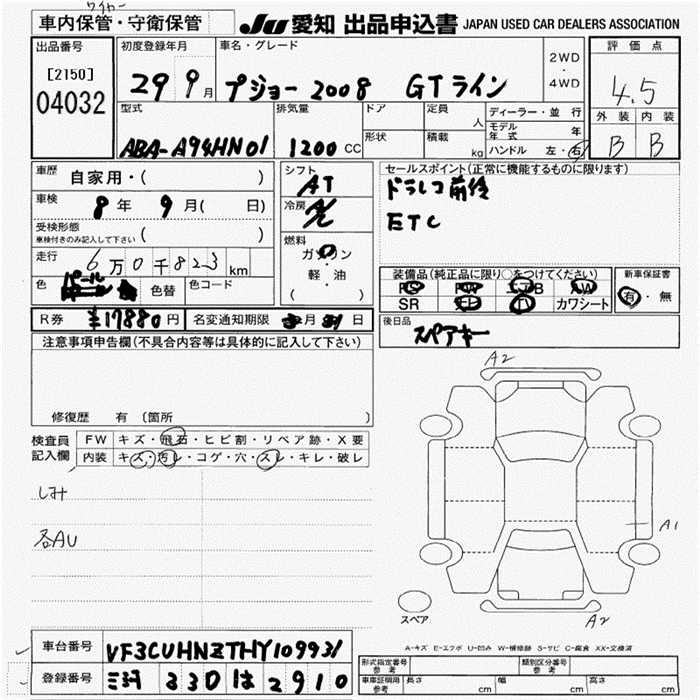 ワイヤー
車内保管・守衛保管
JU 愛知 出品申込書 JAPAN USED CAR DEALERS ASSOCIATION
出品番号 初度登録年月 車名・グレード 2WD・4WD 評価点
[2150]
04032
29 9月 プジョー2008 GTライン 4.5
型式 排気量 ドア 定員 人 ディーラー・並行 外装 内装
ABA-A94HN01 1200 CC 形状 積載 kg モデル年式 年 B B
ハンドル 左・右
車歴 自家用・( ) シフト AT セールスポイント(正常に機能するものに限ります)
車検 8年 9月( 日) 冷房 ドラレコ前後
受検形態 車検付きのみ記入して下さい ( ) 燃料 ETC
走行 6万0千823km ガソリン
軽・油
( )
色 色替 色コード
装備品(純正品に限り○をつけてください) 新車保証書
PS PW エアB AW 有・無
SR TV カワシート
R券 ¥17880円 名変通知期限 月 日
後日品 スペアキー
注意事項申告欄(不具合内容等は具体的に記入して下さい)
修復歴 有 〔箇所
検査員記入欄 FW キズ・飛石・ヒビ割・リペア跡・X要
内装 キズ・汚レ・コゲ・穴・スレ・キレ・破レ
しみ
各AU
A2
A1
A2
スペア
A-キズ E-エクボ U-凹み W-補修跡 S-サビ C-腐食 XX-交換済
車台番号 VF3CUHNZTHY109931
登録番号 330 は 2910
形式指定番号 参考 類別区分番号 参考
車庫証明用 参考 長さ cm 幅 cm 高さ cm